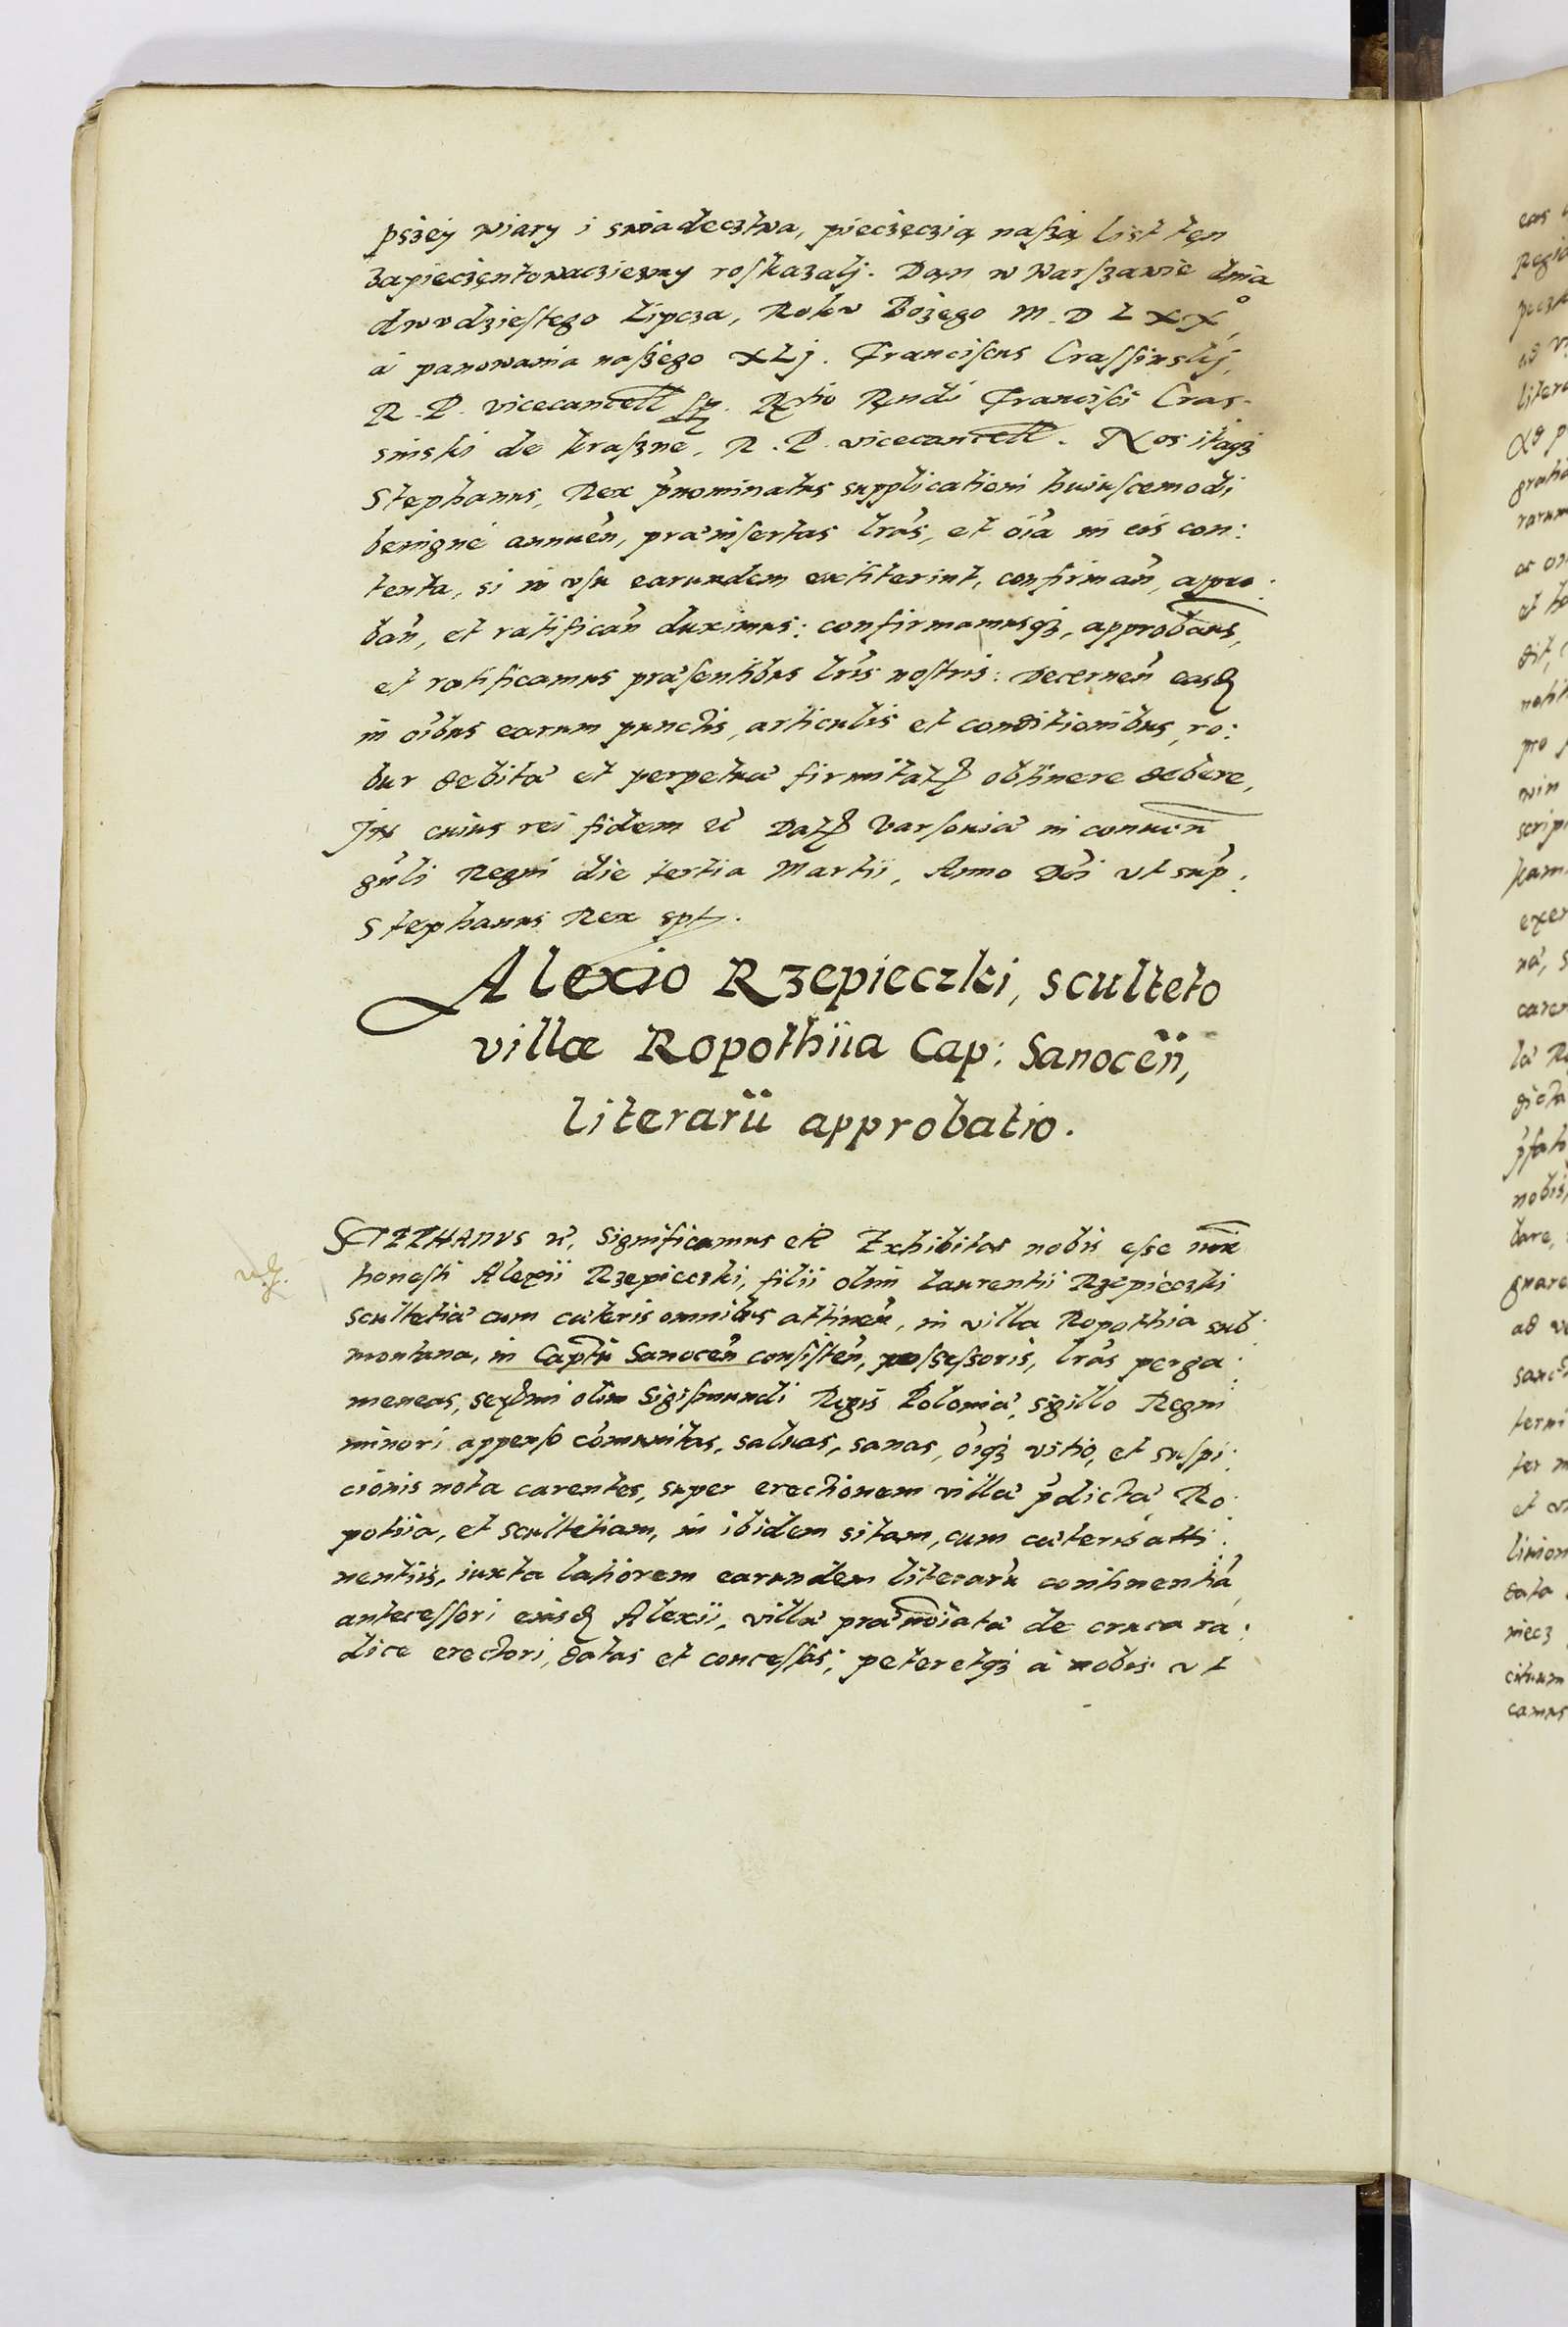 pszey wiary i swiadecztwa, pieczęczią naszą list tęn
zapieczęntowacziesmy roskazalj. Dan w Warszawie dnia
dwvdziestego Lipcza, Rokv Bożego M. D L X X°,
á panowania naszego XLj. Franciscus Crassinskj,
R. P. vicecancell Rndi Francisci Cras-
sinski de kraszne, R. P. vicecancell. Nos itaqз
Stephanus, Rex p̃nominatus supplicationi huiuscemodi
benigné annueñ, præinsertas lr̃as, et oĩa in eis con:
tenta, si in vsu earundem extiterint, confirmañ, appro:
bañ, et ratificañ duximus: confirmamusqз, approbam̃us,
et ratificamus præsentibus lr̃is nostris: Decerneñ easd
in oĩbus earum punctis, articulis et conditionibus, ro:
bur debitæ et perpetuæ firmitat obtinere debere,
In cuius rei fidem et̃ Dat Varsouiæ in conueñ
gñli Regni die tertia Martii, Anno Dñi vt sup̃:
Stephanus Rex spt.
Alexio Rzepieczki, sculteto
villæ Ropothiia Cap: Sanoceñ,
literarũ approbatio.
STEPHANVS et̃, Significamus et̃ Exhibitas nobis esse noĩe
honesti Alexii Rzepieczki, filii olim Laurentii Rzepieczki
scultetiæ cum cæteris omnibus attineñ, in villa Ropothia sub:
montana, in Capt̃u Sanoceñ consisteñ, possessoris, lr̃as perga:
meneas, serẽmi olim Sigismundi Regis Poloniæ, sigillo Regni
minori appenso cõmunitas, saluas, sanas, oĩqз vitio, et suspi:
cionis nota carentes, super erectionem villæ p̃dictæ Ro:
potiia, et scultetiam, in ibidem sitam, cum cæteris atti:
nentiis, iuxta latiorem earundem literarũ continentiã,
antecessori eiusd Alexii, villæ prænoĩatæ de cruca ra:
dice erectori, datas et concessas, peteretqз á nobis vt